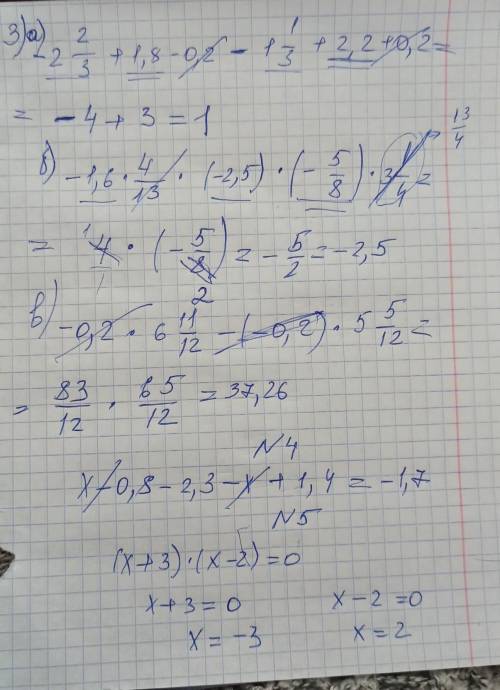 3) а) -2 2/3 + 1,8 - 0,2 - 1 1/3 + 2,2 + 0,2 =
= -4 + 3 = 1
б) -1,6 · 4/13 · (-2,5) · (- 5/8) · 3 1/4 = 13/4
= 4 · (- 5/8) = - 5/2 = -2,5
1 1 2
в) -0,2 · 6 11/12 - (-0,2) · 5 5/12 =
= 83/12 · 65/12 = 37,26
N4
x - 0,8 - 2,3 - x + 1,4 = -1,7
N5
(x+3) · (x-2) = 0
x+3 = 0 x-2 = 0
x = -3 x = 2